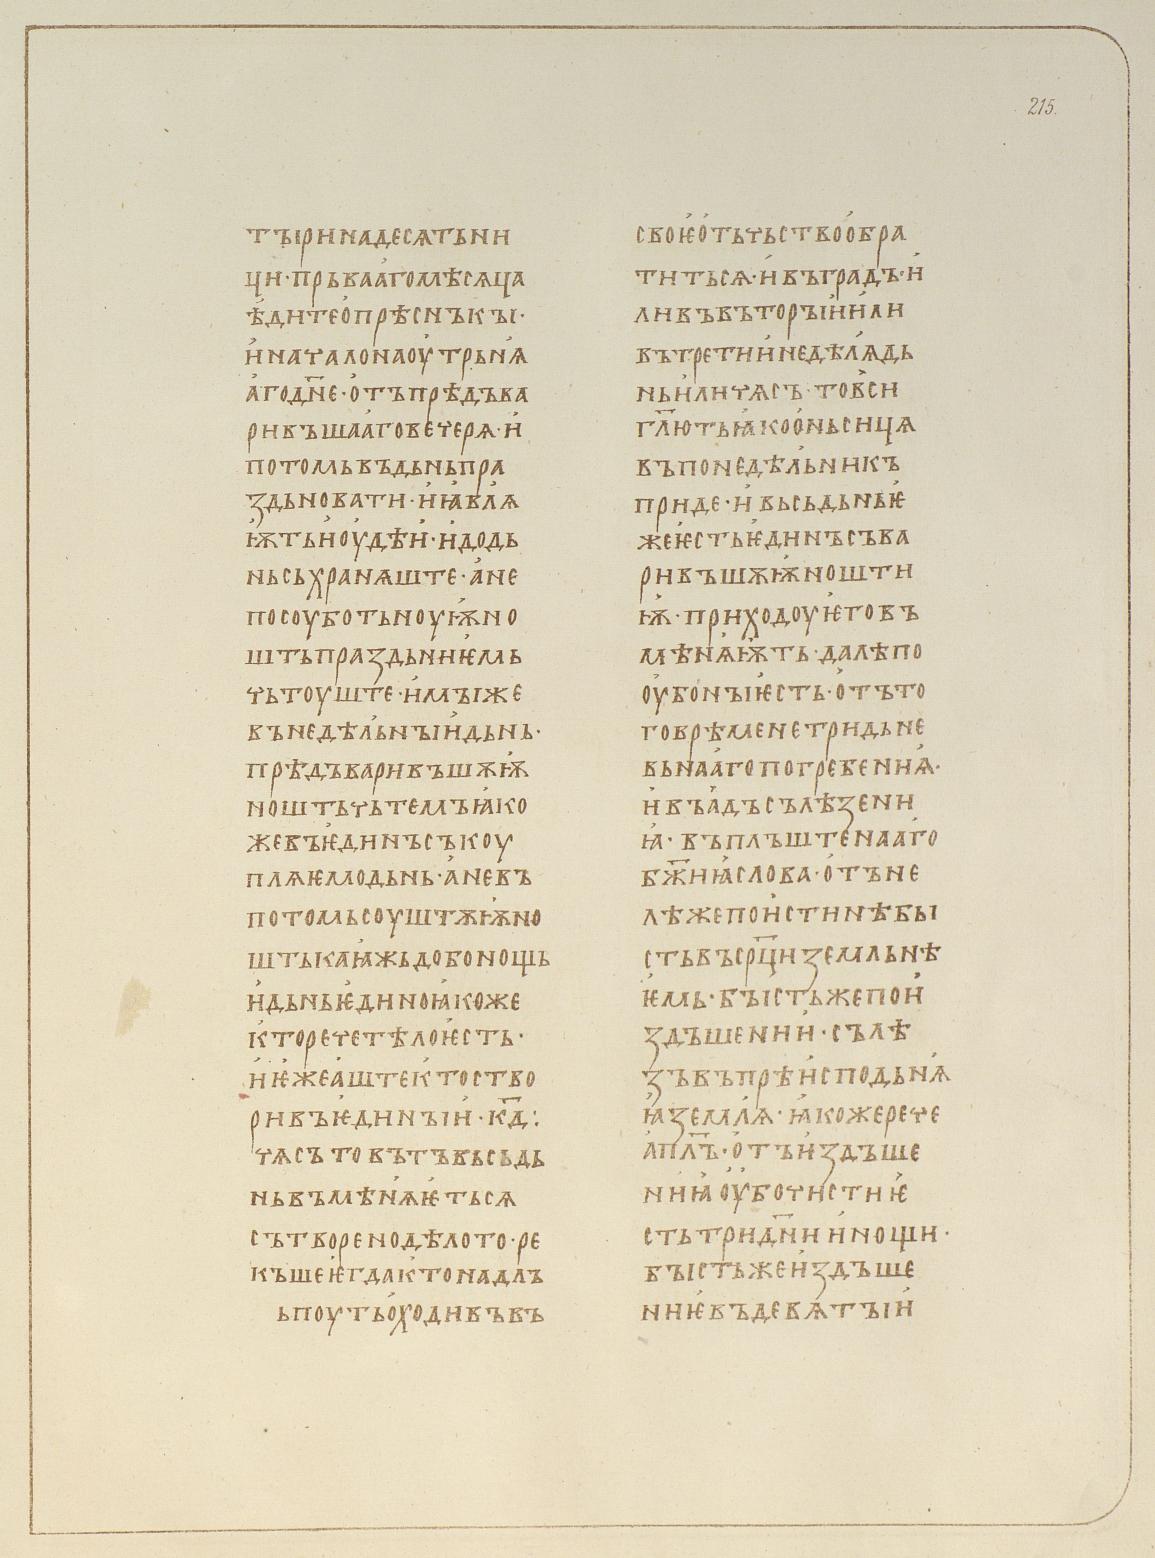 215.
тъіринадесѧтьни
ци·прьвааго мѣсѧца
ѣдите опрѣснъкъі·
и начало на оутрьнѧ
аго дн҃е·отъ прѣдъва
ривъшааго вечерѧ·и
потомь въ дьнь пра
здьновати·и ꙗвлѧ
ѭть иоудѣи·и додь
ньсь хранѧште·а не
по соуботьноуѭ но
шть праздьниѥмь
чьтоуште·имъі же
въ недѣльнъіи дьнь·
прѣдъваривъшѫѭ
ношть чьтемъ ꙗко
же въ ѥдинъ съкоу
плѧѥмо дьнь·а не въ
потомь соуштѫѭ но
шть каꙗ жьдо бо нощь
и дьнь ѥдино ꙗкоже
кто рече тѣло ѥсть·
иѥже аште кто ство
ривъ ѥдинъіи·к҃д·:
чѧсъ то вътъ вьсь дь
нь въмѣнѧѥтьсѧ
сътворено дѣло то·ре
къше ѥгда кто надал
ь поуть оходивъ въ
своѥ отьчьство обра
титьсѧ·и въ градъ·и
ли въ въторъіи или
въ третии недѣлѧ дь
нь или чѧсъ·то вси
гл҃ють ꙗко онъсица
въ понедѣльникъ
приде·и вьсь дьнь ѥ
же ѥсть ѥдинъ съва
ривъшѫѭ ношти
ѭ·приходоу ѥго въ
мѣнѧѭть·да лѣпо
оубо нъі ѥсть·отъ то
го врѣмене тридьне
вьнааго погребениꙗ·
и въ адъ сълѣзени
ꙗ·въплъштенааго
бж҃иꙗ слова·отъне
лѣже поистинѣ бы
сть въ ср҃ци земльнѣ
ѥмь·бъість же по и
здъшении·сълѣ
зъ въ прѣисподьнѧ
ꙗ землѧ·ꙗкоже рече
апл҃ъ·отъ издъше
ниꙗ оубо чисти ѥ
сть три дн҃и и нощи·
бъість же издъше
ниѥ въ девѧтъіи